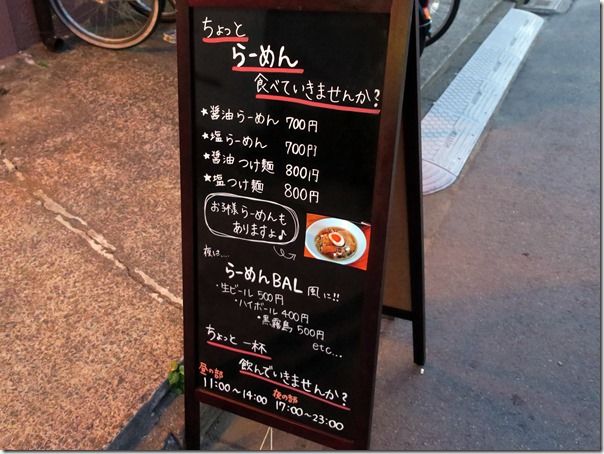 ちょっと
らーめん
食べていきませんか？
★醤油らーめん 700円
★塩らーめん 700円
★醤油つけ麺 800円
★塩つけ麺 800円
お子様らーめんも
ありますよ♪
夜は....
らーめんBAL風に!!
・生ビール 500円
・ハイボール 400円
・黒霧島 500円
etc...
ちょっと一杯
飲んでいきませんか？
昼の部
11:00〜14:00
夜の部
17:00〜23:00